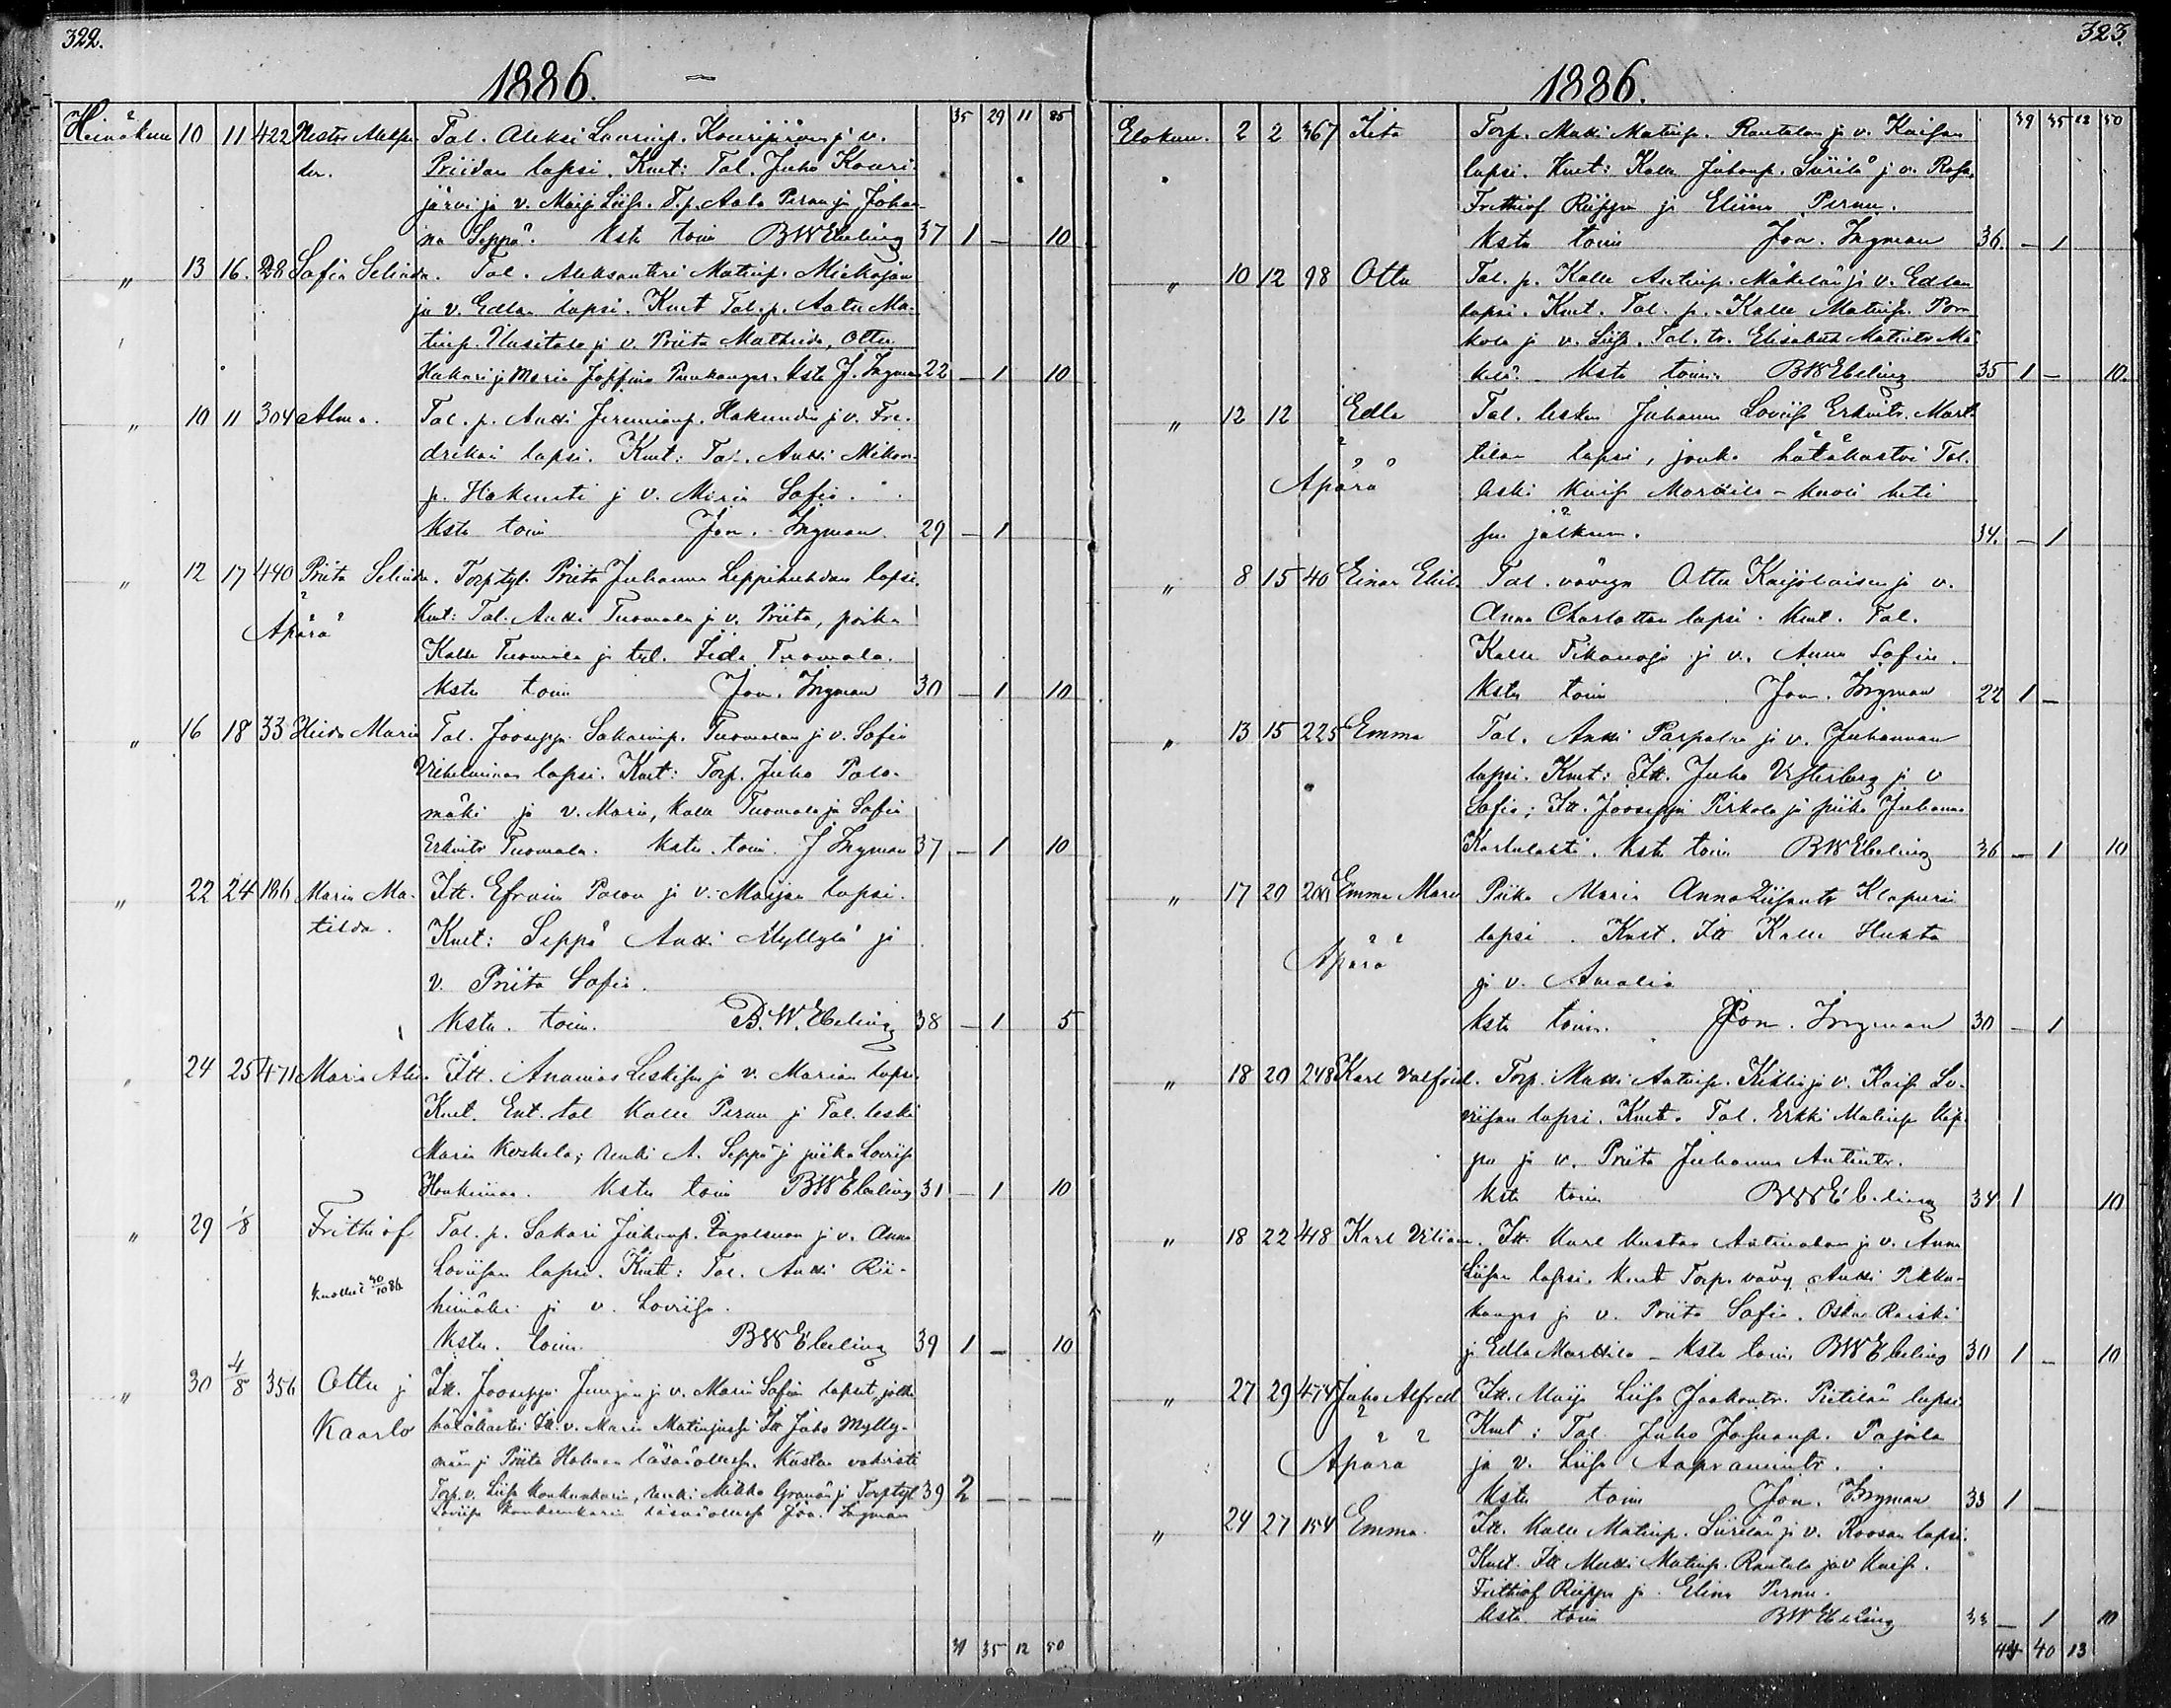 322.
1886.
35 29 11 85
Heinäkuu 10 11 422 Nestor Aleksan- Tal. Aleksi Laurinp. Kourijärven j v.
der. Priidan lapsi. Kmt: Tal. Juho Kouri-
järvi ja v. Maija Liisa. T.p. Aato Pernu ja Johan-
na Seppä. Kste toim BWEbeling 37 1 — 10
" 13 16. 28 Sofia Selinda. Tal. Aleksanteri Matinp. Mickojan
ja v. Edlan lapsi. Kmt Tal. p. Aatu Ma-
tinp. Uusitalo j v. Priita Mathilda, Otto
Hakari j Maria Josefina Punkangas. Kste J. Ingman 22 — 1 10
" 10 11 304 Alma. Tal. p. Antti Jeremianp. Hakundin j v. Fre-
drikan lapsi. Kmt: Tal. Antti Mikon-
p. Hakunti j v. Maria Sofia.
Kste toim Jon. Ingman. 29 — 1
" 12 17 440 Priita Selinda. Torp.tyt. Priita Juhanna Leppihuhdan lapsi.
Äpärä Kmt: Tal. Antti Tuomala j v. Priita, poika
Kalle Tuomala j tyt. Iida Tuomala.
Kste toim Jon. Ingman 30 — 1 10
" 16 18 33 Hilda Maria Tal. Jooseppi Sakarinp. Tuomalan j v. Sofia
Vilhelminan lapsi. Kmt: Torp. Juho Palo-
mäki ja v. Maria, Kalle Tuomala ja Sofia
Erkintr Tuomala. Kste toim. J Ingman 37 — 1 10
" 22 24 186 Maria Ma- Itt. Efraim Palon ja v. Maijan lapsi.
tilda. Kmt: Seppä Antti Myllylä ja
v. Priita Sofia.
Kste. toim. B.W.Ebeling 38 — 1 5
" 24 25 471 Maria Itt. Ananias Leskisen ja v. Marian lapsi.
Kmt. Ent. tal Kalle Pernu j Tal. leski
Maria Koskela; renki A. Seppä j piika Loviisa
Honkimaa. Kste toim BWEbeling 31 — 1 10
" 29 1/8 Frithiof Tal. p. Sakari Juhanp. j v. Anna
Loviisan lapsi. Kmt: Tal. Antti Rii-
kuollut 30/10 86 himäki ja v. Loviisa.
Kste. toim. BWEbeling 39 1 — 10
" 30 4/8 356 Otto j Itt. Jooseppi Junijan j v. Maria Sofian lapset, jotka
Kaarlo hätäkastoi Itt. v. Maria Itt Juho Mylly-
män j Priita läsnäollessa. Kasteen vahvisti
Torp. v. Liisa Konkunkari, renki Mikko Granö j Torp.tyt 39 2 — — —
Loviisa läsnäollessa Jon. Ingman
39 35 12 50
323.
1886.
39 35 12 50
Elokuu. 2 2 367 Iita Torp. Matti Matinp. Rantalan ja v. Kaisan
lapsi. Kmt: Kalle Juhonp. Siirilä j v. Rosa,
Frithiof Riippa ja Eliina Pernu.
Kste toim Jon. Ingman 36. — 1
" 10 12 98 Otto Tal. p. Kalle Antinp. Mäkelän ja v. Edlan
lapsi. Kmt. Tal. p. Kalle Matinp. Por-
kola j v. Liisa. Tal. tr. Elisabeth Matintr Mä-
kelä. Kste toim. BWEbeling 35 1 — 10.
" 12 12 Edla Tal. lesken Johanna Loviisa Erkintr. Mart-
Äpärä tilan lapsi, jonka hätäkastoi Tal.
leski Kaisa Marttila – kuoli heti
sen jälkeen. 34. — 1
" 8 15 40 Einar Tal. vävyn Otto Kaijolaisen ja v.
Anna Charlottan lapsi. Kmt. Tal.
Kalle Tikanoja ja v. Anna Sofia.
Kste toim Jon. Ingman 22 1 —
" 13 15 225 Emma Tal. Antti Parpalan ja v. Juhannan
lapsi. Kmt: Itt. Juho Vesterberg j v
Sofia; Itt. Jooseppi Pirkola ja piika Juhanna
Kaste toim BWEbeling 36 — 1 10
" 17 20 200 Emma Maria Piika Maria Anna Liisantr Klapurin
Äpärä lapsi. Kmt. Itt Kalle Huhta
ja v. Amalia
Kste toim. Jon. Ingman 30 — 1
" 18 20 248 Karl Valfrid. Torp. Matti Antinp. j v. Kaisa Lo-
viisan lapsi. Kmt. Tal. Erkki Matinp.
ja v. Priita Juhanna Antintr.
Kste toim BWEbeling 34 1 10
" 18 22 418 Karl Viliam. Itt. Karl Kustaa Antinahon ja v. Anna
Liisan lapsi. Kmt Torp. vävy Antti
kangas ja v. Priita Sofia. Oskar Raiski
ja Edla Marttila – Kste toim BWEbeling 30 1 — 10
" 27 29 474 Juho Alfred Itt. Maija Liisa Jaakontr. Pietilän lapsi
Äpärä Kmt: Tal. Juho Pajala
ja v. Liisa
Kste toim Jon. Ingman 33 1 —
" 24 27 154 Emma. Itt. Kalle Matinp. Siirilän j v. Roosan lapsi.
Kmt. Itt Matti Matinp. Rantala ja v Kaisa.
Frithiof Riippa ja Elina Pernu.
Kste toim BWEbeling 33 — 1 10
44 40 13